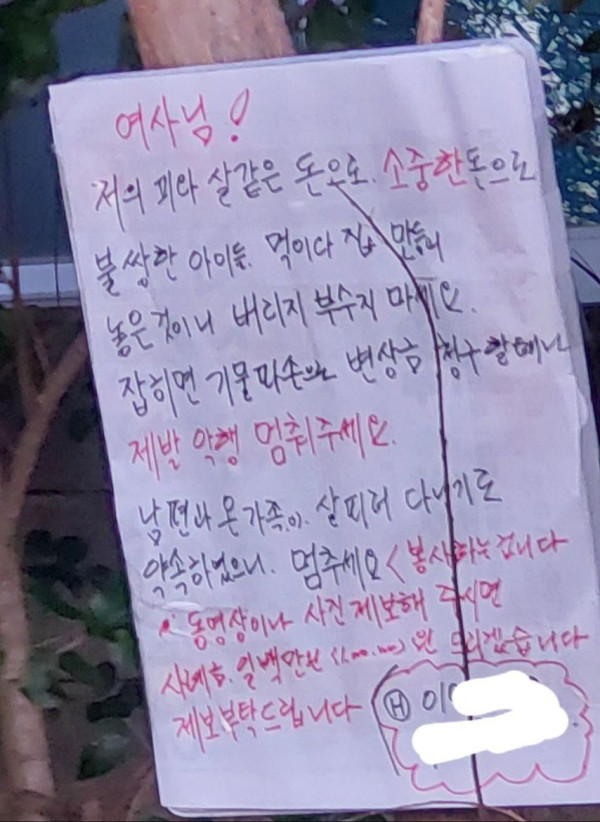 여사님!
저의 피와 살같은 돈으로. 소중한돈으로
불쌍한 아이들. 먹이다 집 만들어
놓은것이니 버리지 부수지 마세요.
잡히면 기물파손으로 변상금 청구할테니
제발 악행 멈춰주세요.
남편과 온가족이. 살피러 다니기로
약속하였으니. 멈추세요 < 봉사하는겁니다
동영상이나 사진제보해 주시면
사례금. 일백만원 (1,00.00)원 드리겠습니다
제보부탁드립니다 H 01